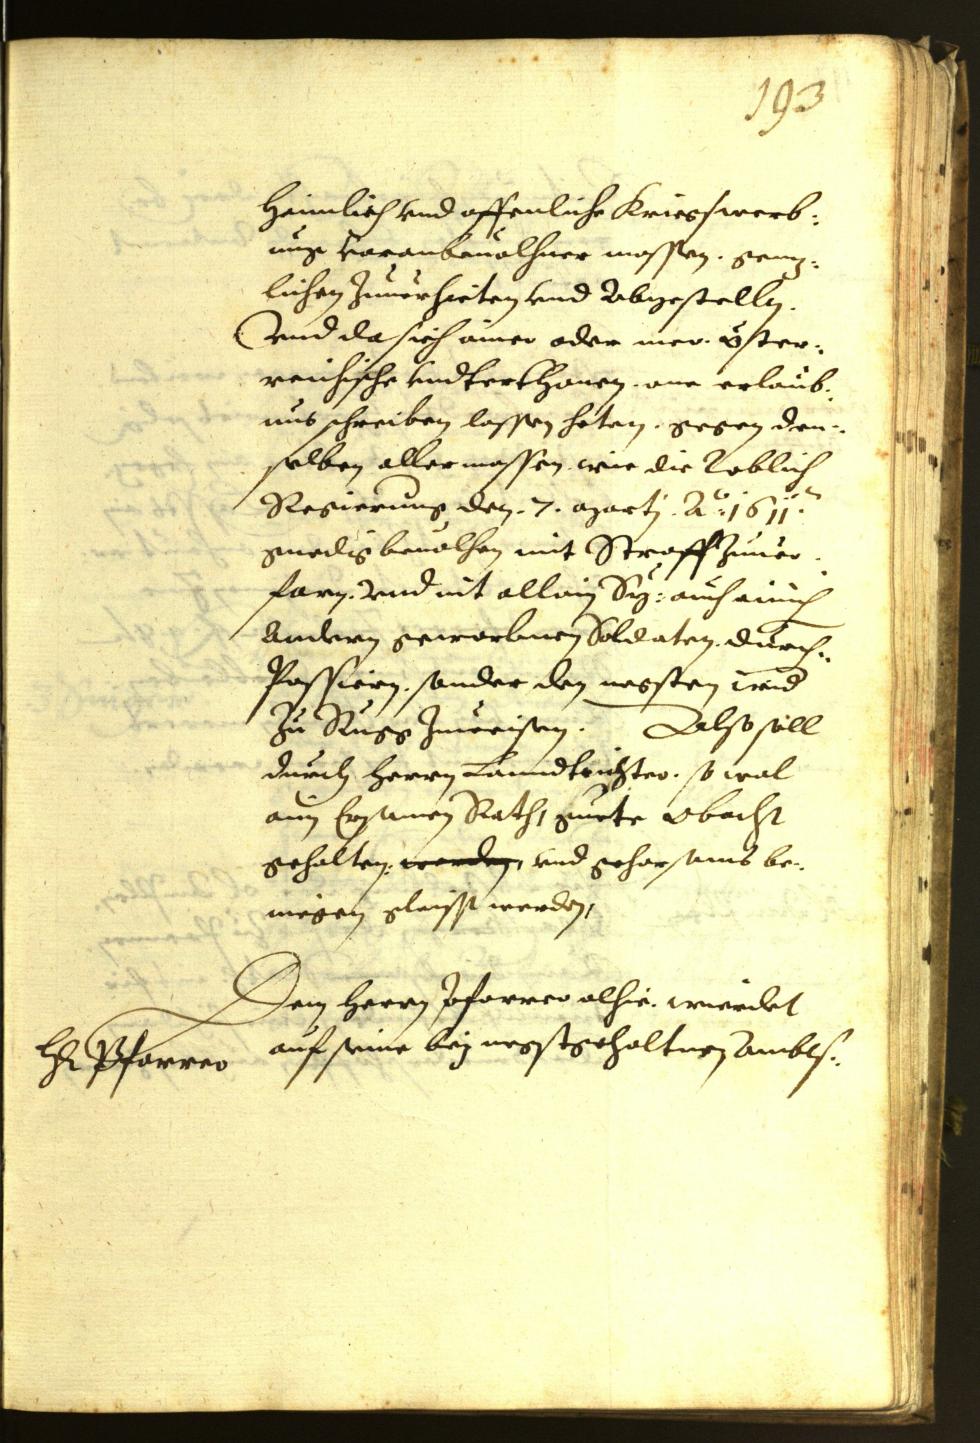 193
Heimlich vnd offenliche Kriegswerb:
ung voranbeuolhner massen. genz:
lichen Zuuerhieten vnd Abgestelln.
Vnd da sich ainer oder mer. Öster:
reichische vndterthonen. one erlaub:
nus schreiben lassen heten. gegen den:
selben allermassen. wie die Loblich
Regierung den. 7. Martj. Ao: 1611.
gnedig beuolhen mit Straff Zuuer:
farn. Vnd nit allain Sy: auch ainich
Andern geworbnen Soldaten. durch:
Passiern. sonder den negsten wid
Zu Rugg Zuweisen. Also soll
durch Herrn Lanndtrichter. so wol
ain Ersamen Rath, guete obacht
gehalten: werden, vnd gehorsams be:
wegen glaisst werden,
Dem Herrn Pfarrer alhie. wierdet
Hr Pfarrer
auf seine bey negstgehaltnen Ambts: